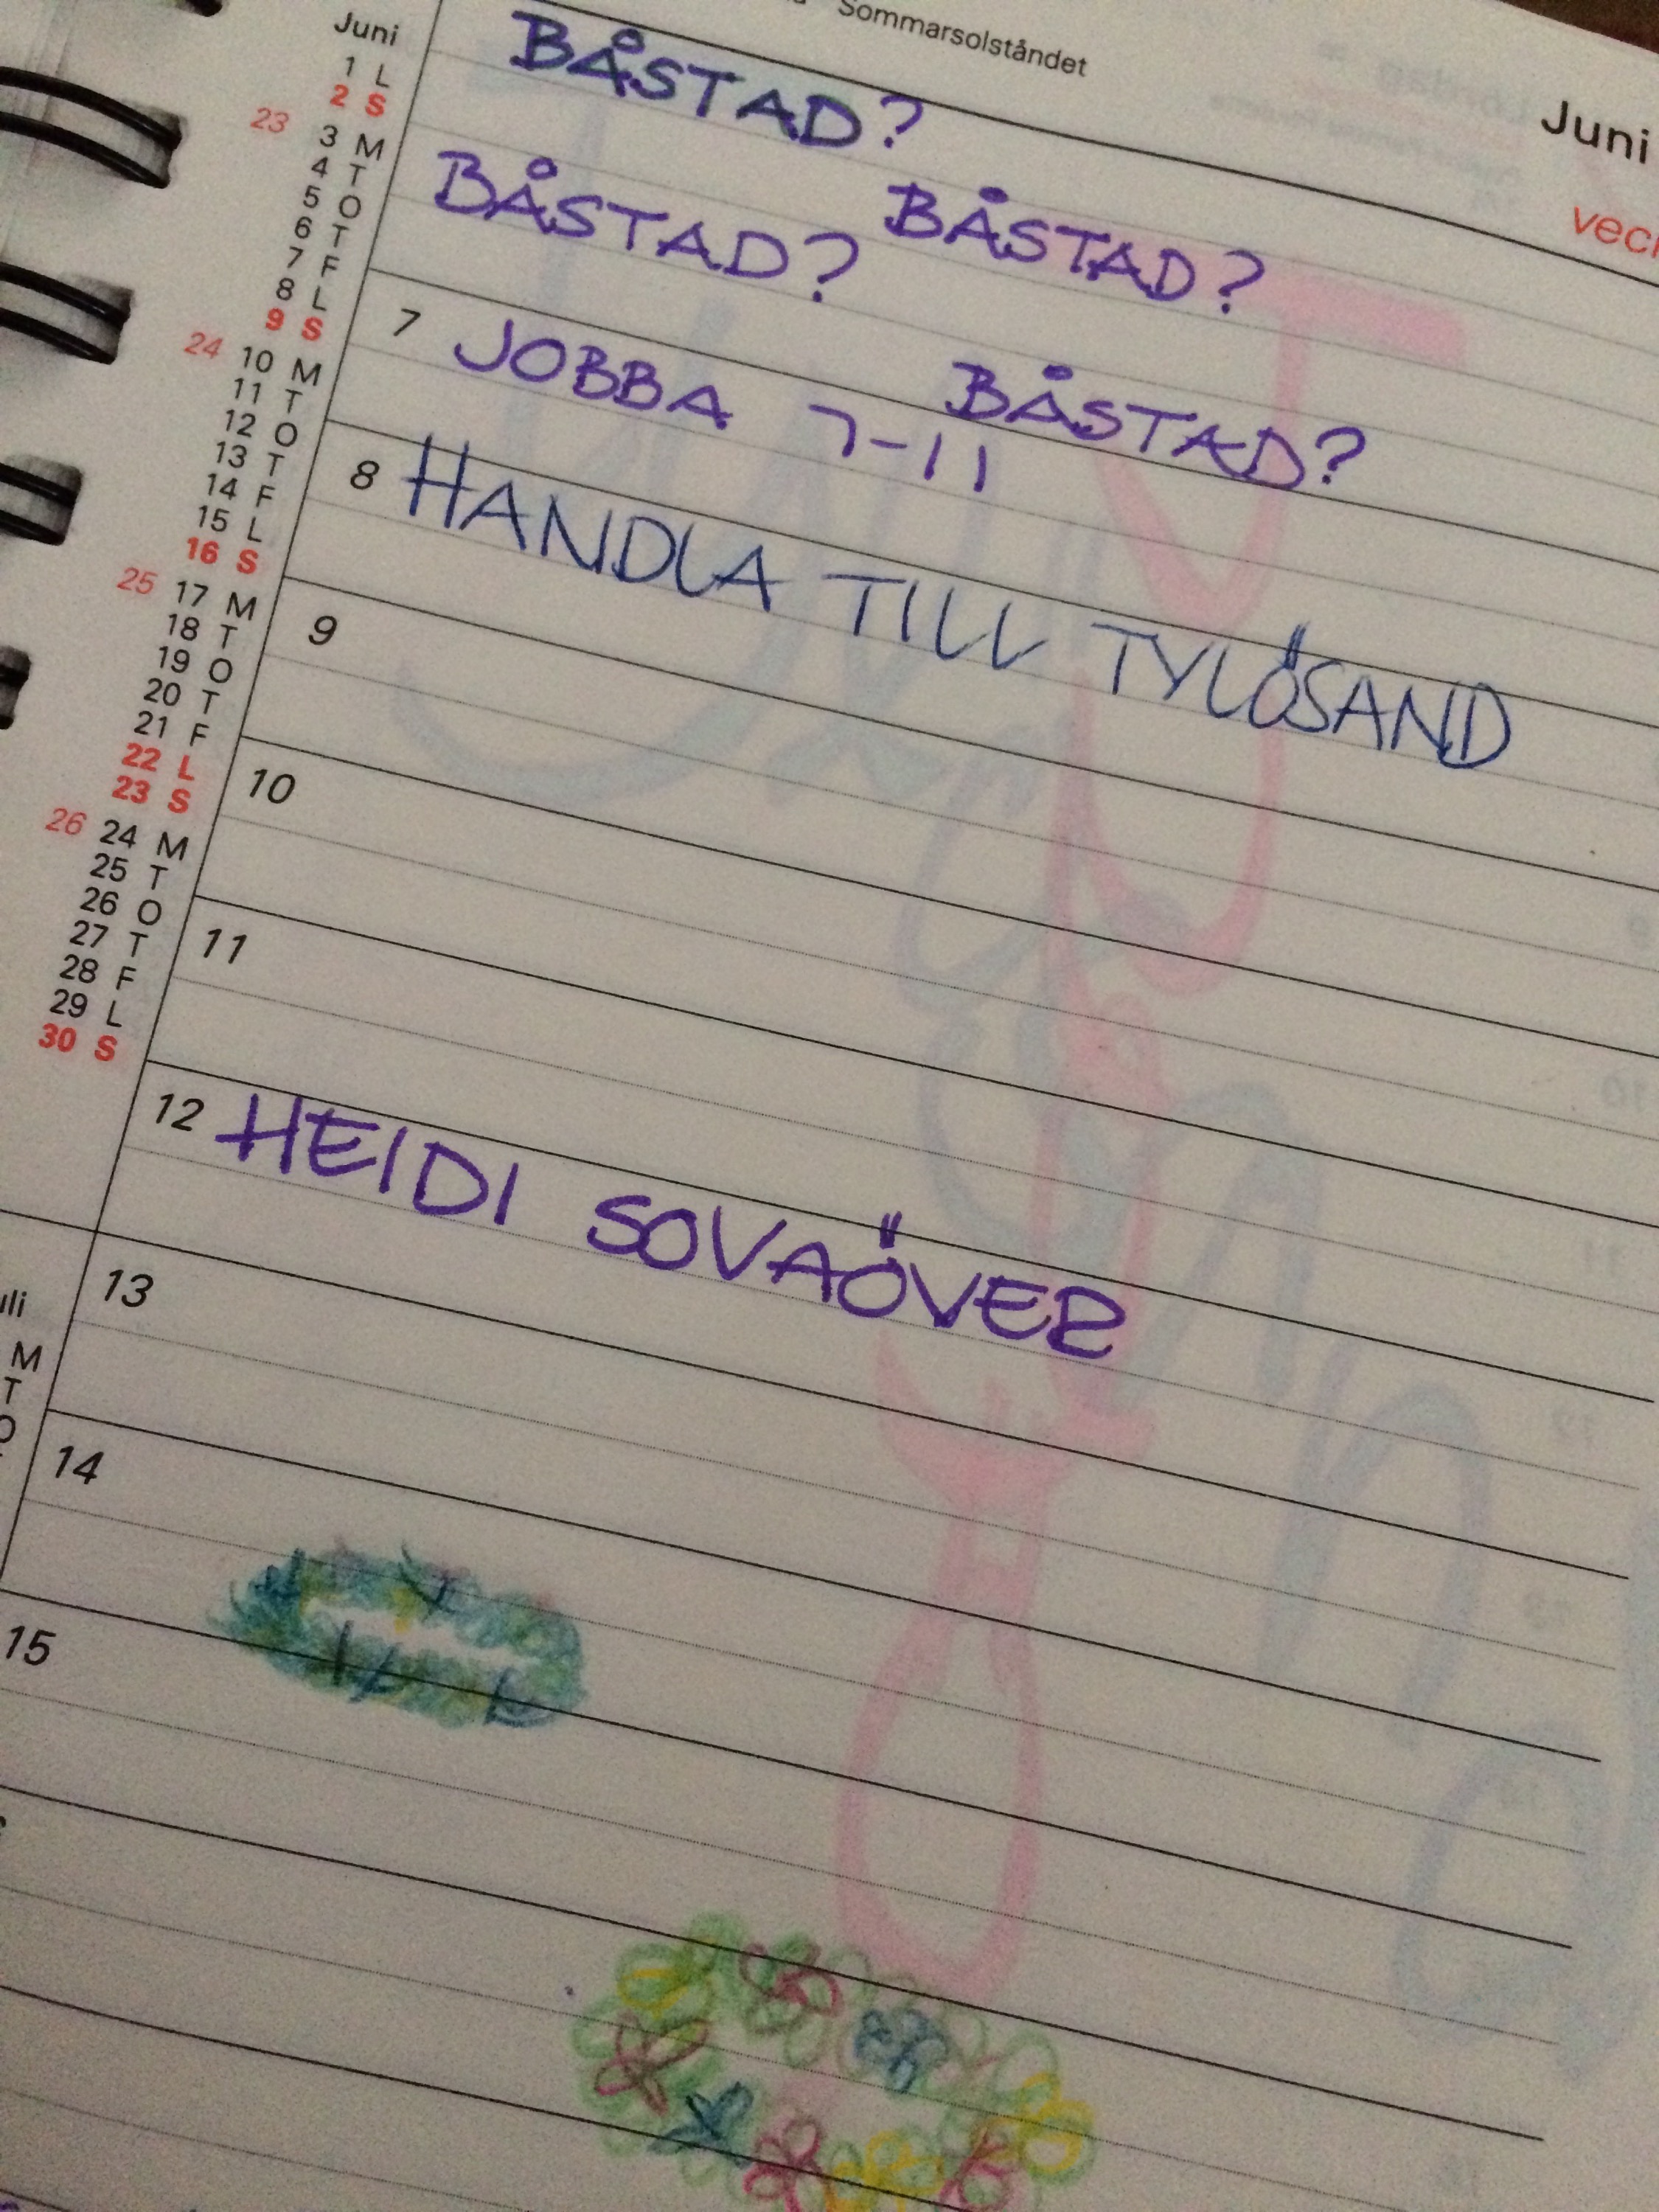 Sommarsolståndet
Juni
Juni
BÅSTAD?
BÅSTAD? BÅSTAD?
7 JOBBA 7-11 BÅSTAD?
8 HANDLA TILL TYLÖSAND
9
10
11
12 HEIDI SOVAÖVER
13
14
15
1 L
2 S
23 3 M
4 T
5 O
6 T
7 F
8 L
9 S
24 10 M
11 T
12 O
13 T
14 F
15 L
16 S
25 17 M
18 T
19 O
20 T
21 F
22 L
23 S
26 24 M
25 T
26 O
27 T
28 F
29 L
30 S
M
T